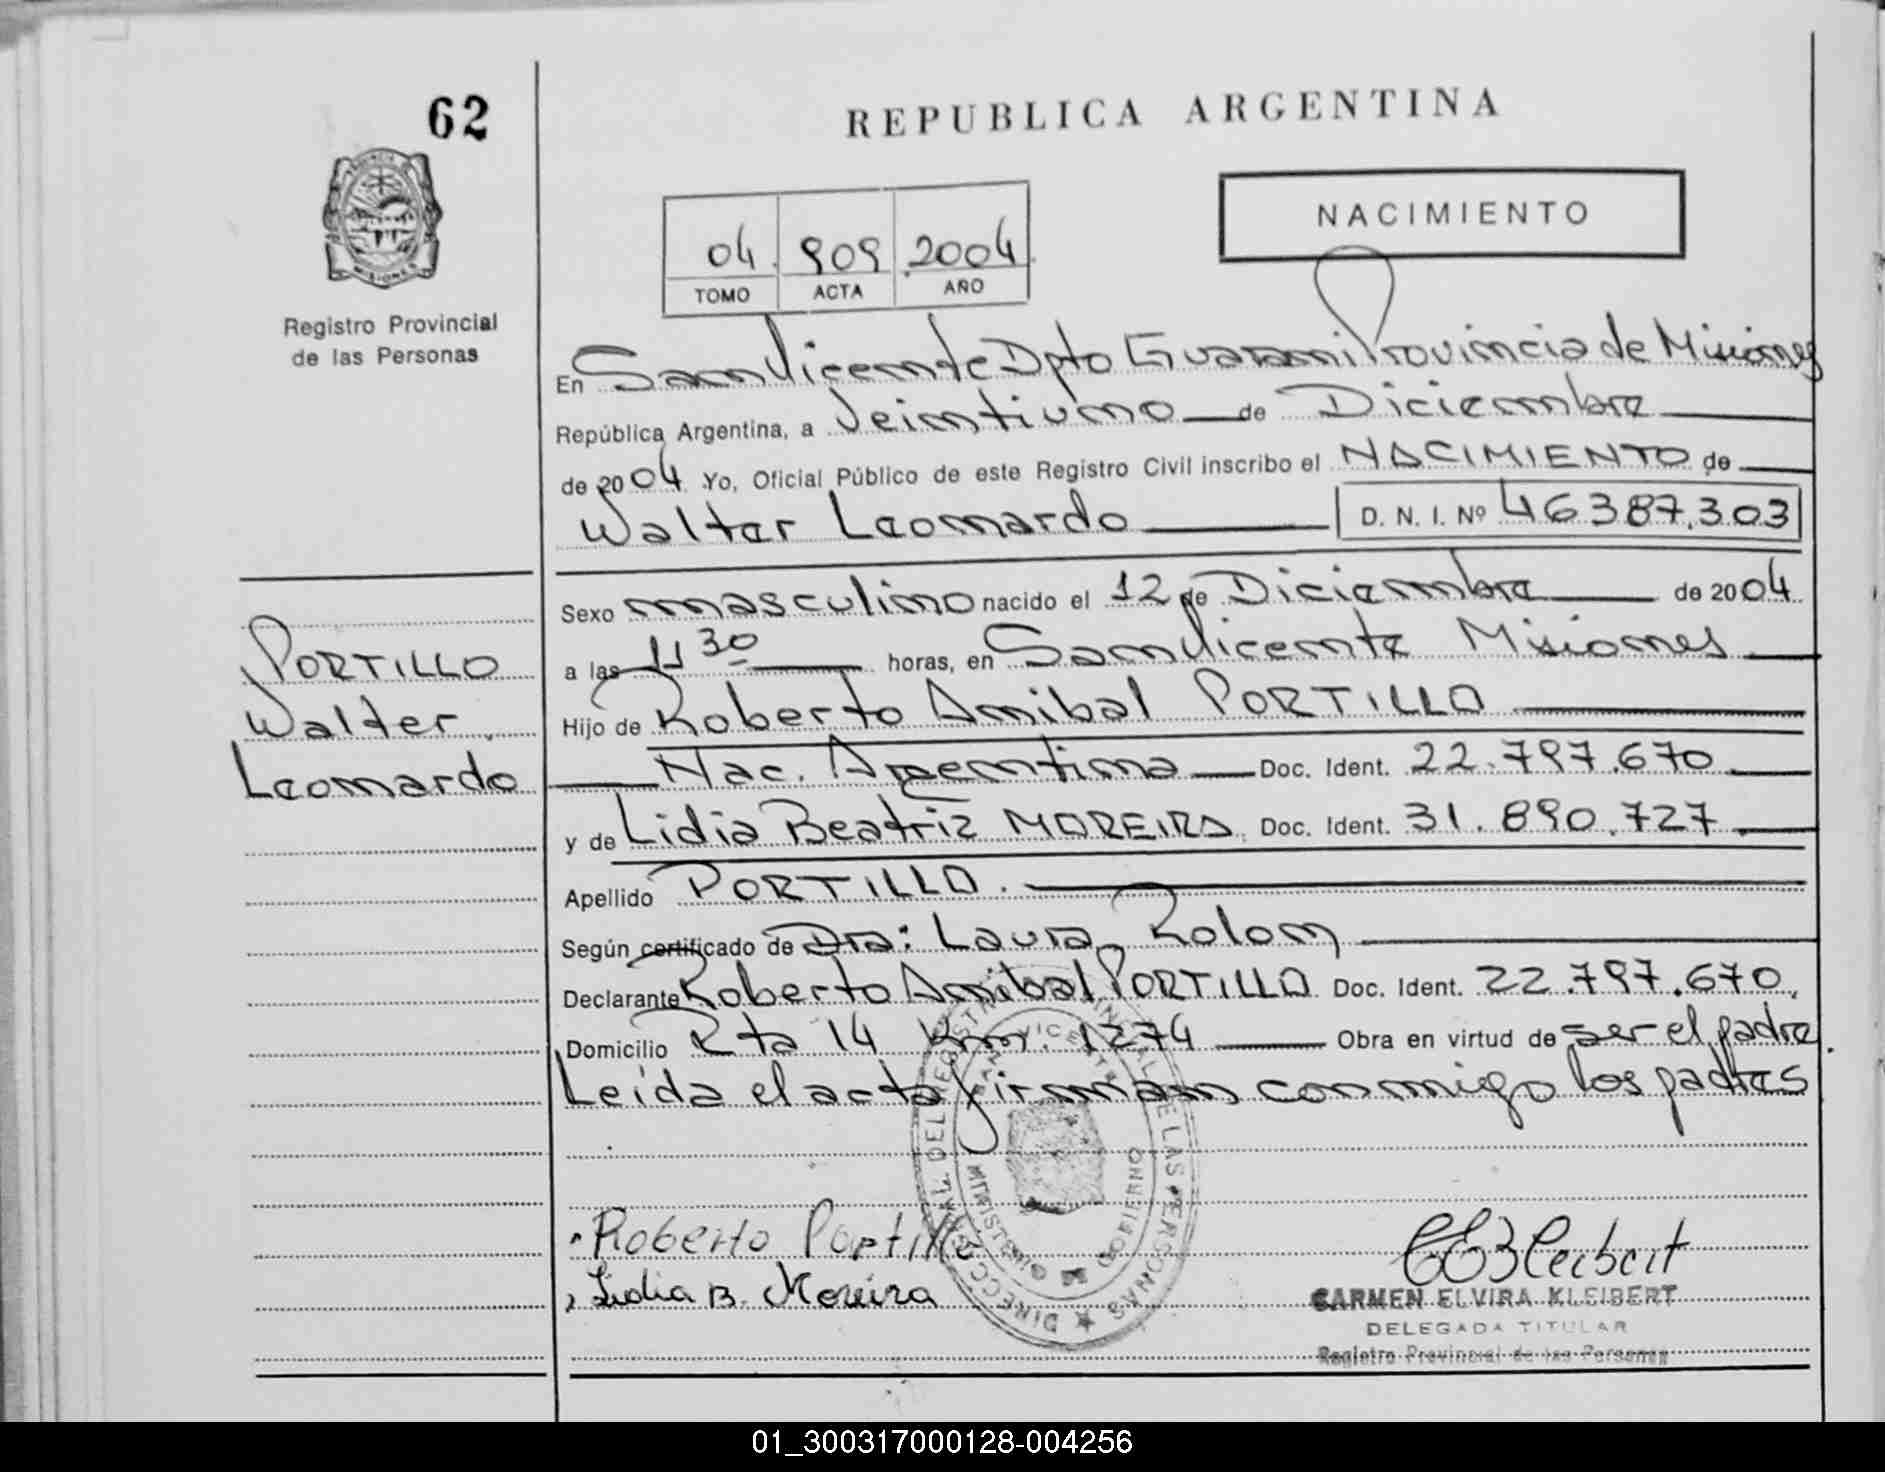 62
REPUBLICA ARGENTINA
NACIMIENTO
04 909 2004
TOMO ACTA AÑO
Registro Provincial
de las Personas
En San Vicente Dpto Guarani Provincia de Misiones
República Argentina, a Veintiuno de Diciembre
de 2004 Yo, Oficial Público de este Registro Civil inscribo el NACIMIENTO de
Walter Leonardo D. N. I. Nº 46387.303
Sexo masculino nacido el 12 de Diciembre de 2004
a las 11 30 horas, en San Vicente Misiones
PORTILLO
Walter
Leonardo
Hijo de Roberto Anibal PORTILLO
Nac. Argentina Doc. Ident. 22.797.670
y de Lidia Beatriz MOREIRA Doc. Ident. 31.890.727
Apellido PORTILLO
Según certificado de Dra: Laura Rolon
Declarante Roberto Anibal PORTILLO Doc. Ident. 22.797.670
Domicilio Rta 14 Km. 1274 Obra en virtud de ser el padre
Leída el acta firman conmigo los padres
Roberto Portillo
Lidia B. Moreira
CARMEN ELVIRA KLEIBERT
DELEGADA TITULAR
Registro Provincial de las Personas
01_300317000128-004256